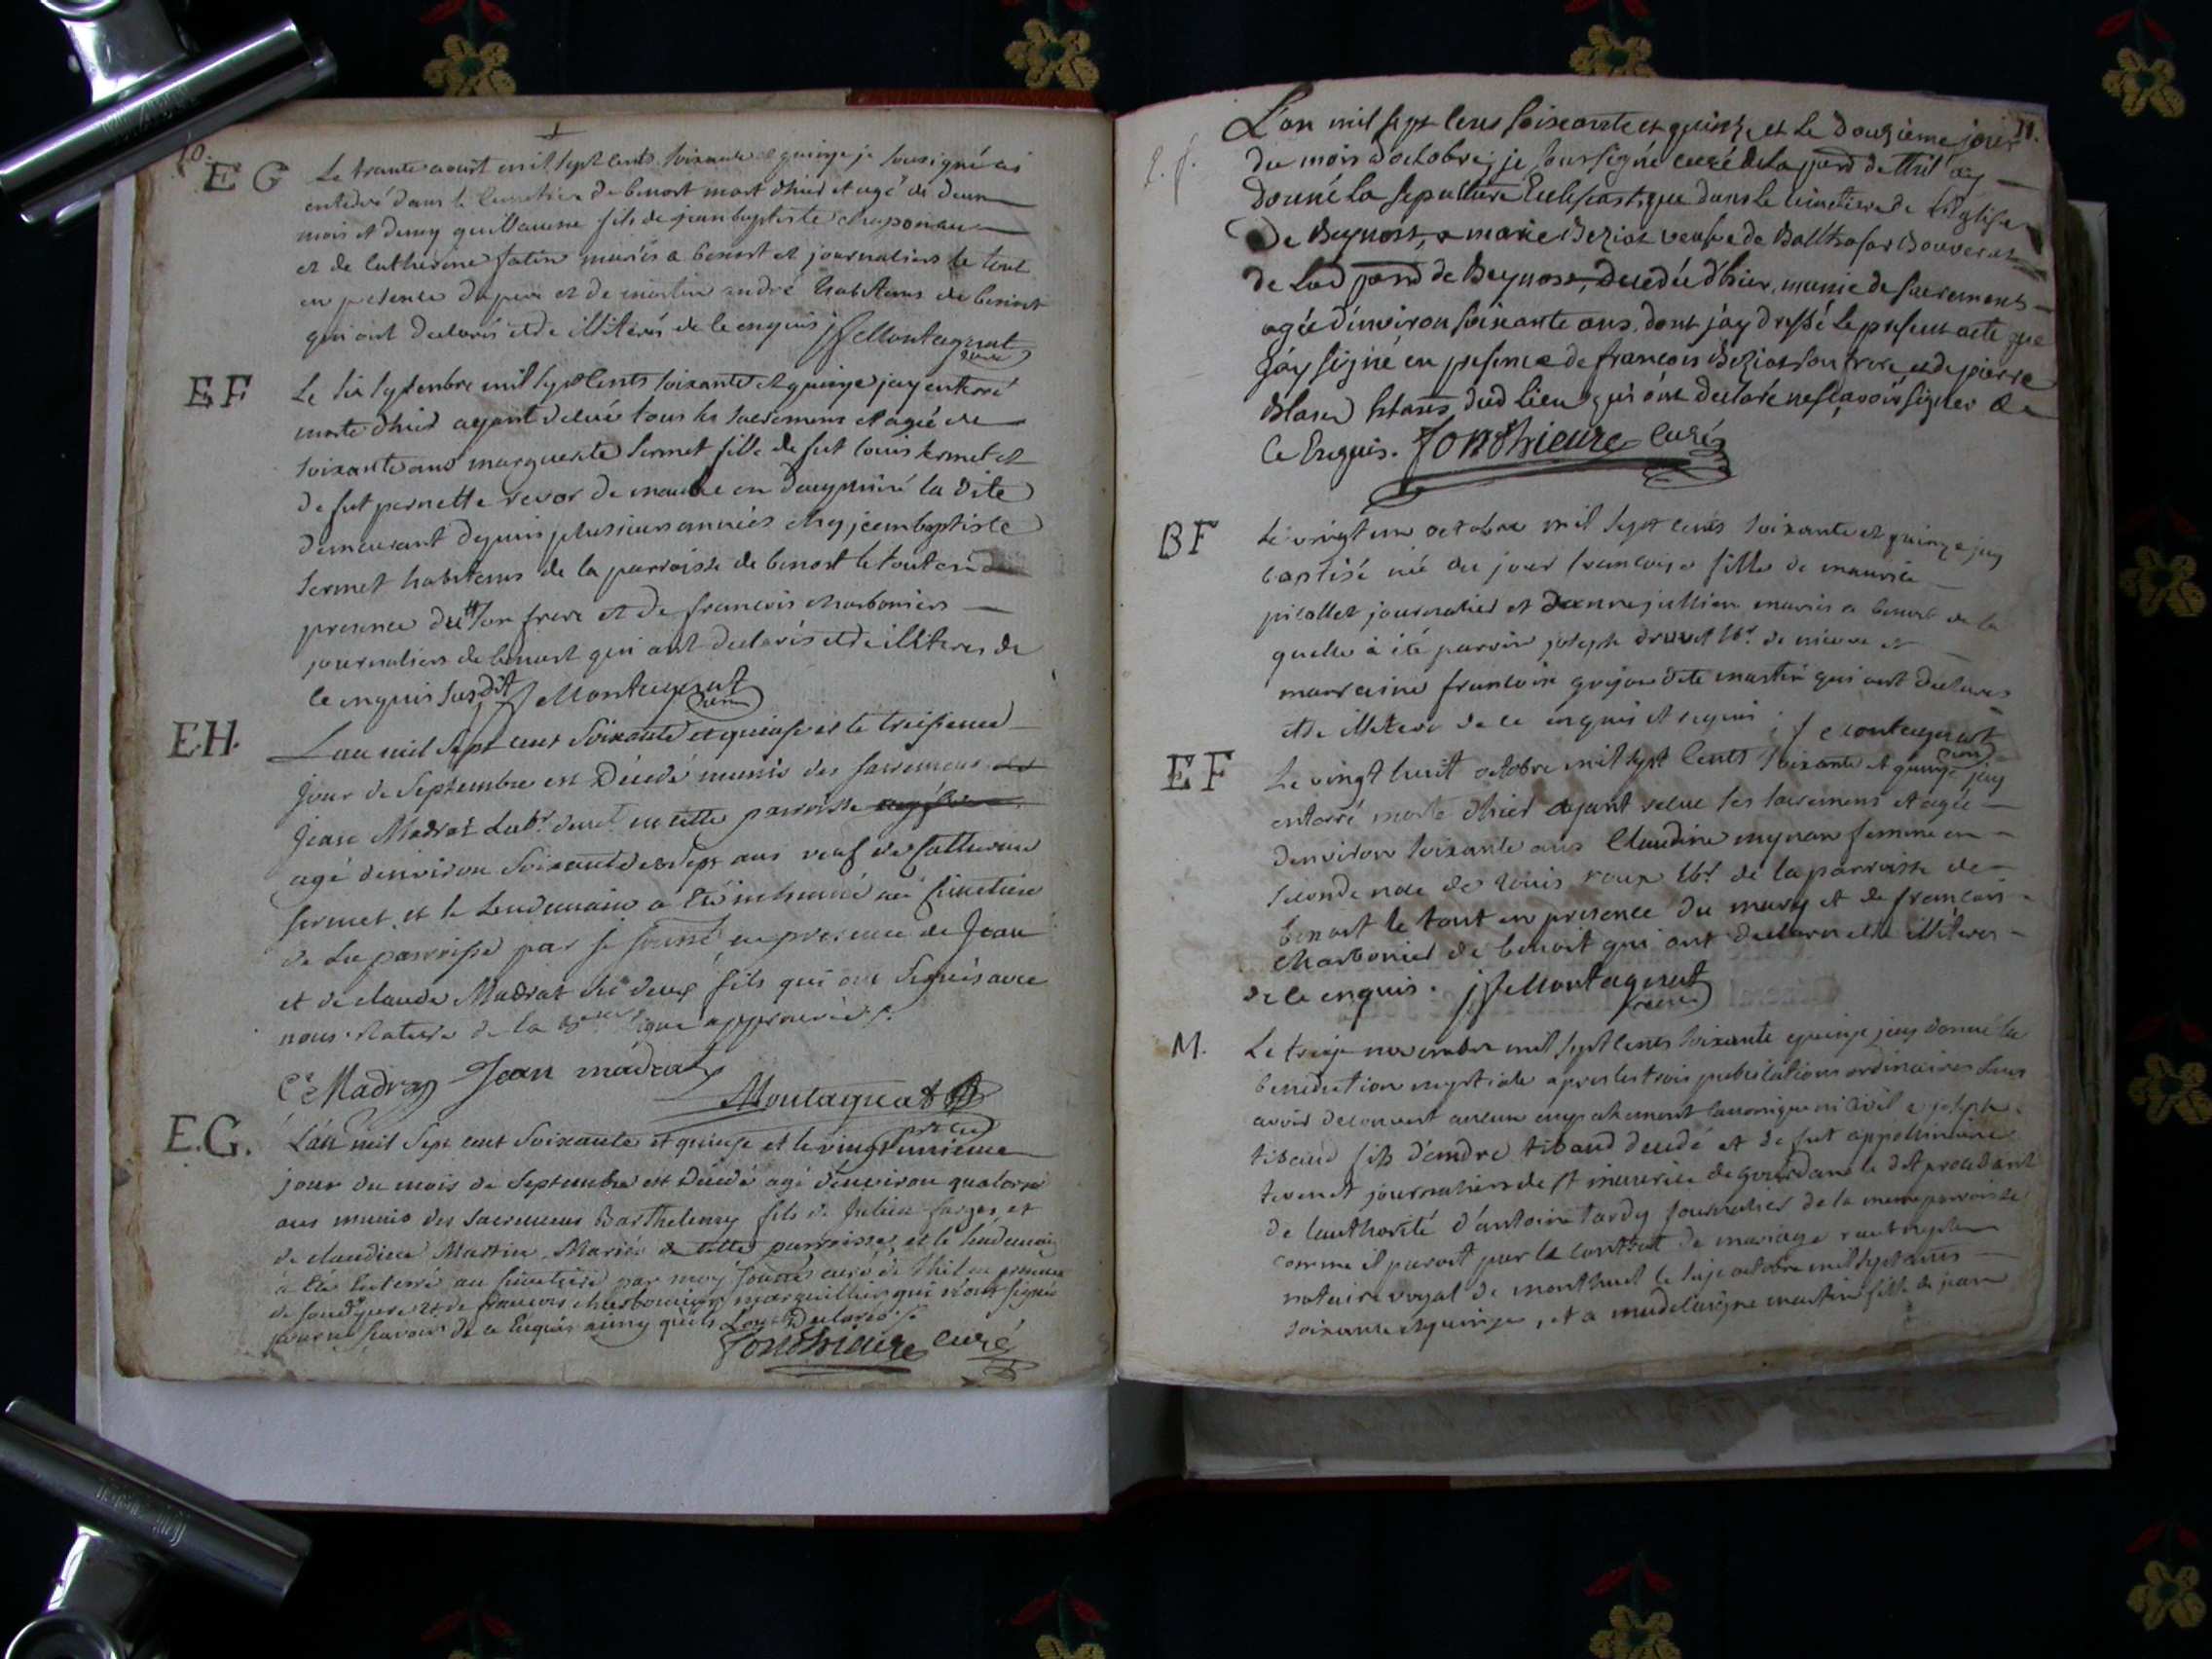 10.
EG Le trante aoust mil sept cents soixante et quinze je sousigné ai
enterré dans le cimetiere de benost mort dhier et agé de deux
mois et demy guillaume fils de jean baptiste chaponau
et de catherine fatin mariés a benost et journaliers le tout
en presence du pere et de martin andré habitans de benost
qui ont declarés etre illiterés de ce enquis Montagnat
curé
EF Le six septembre mil sept cents soixante et quinze jay enterré
morte dhier ayant recue tous les sacremens et agée de
soixante ans marguerite sermet fille de fut louis sermet et
de fut pernette revor de en dauphiné la dite
demeurant depuis plussieurs années chez jean baptiste
sermet habitans de la parroisse de benost le tout en
presence du son frere et de francois charboniers
journaliers de benost qui ont declarés etre illiteres de
ce enquis susdit Montagnat
curé
E.H. Lan mil sept cent soixante et quinse et le treisieme
jour de Septembre est Décédé munis des sacremens
Jean Madrat Labr. demt. en cette parroisse
agé denviron soixante et sept ans veuf de Catherine
sermet, et le lendemain a été inhumé au cimetiere
de la parroisse par je soussé en presence de Jean
et de claude Madrat ses deux fils qui ont signés avec
nous. Rature de la ligne approuvée
Ce Madrat Jean madrat
Montagnat
curé
E.G. L'an mil sept cent soixante et quinse et le vingt unieme
jour du mois de Septembre est Décédé agé d'environ quatorse
ans munis des sacremens Barthelemy fils de Julien farges et
de claudine Martin, Mariés de cette parroisse, et le lendemain
a été enterré au cimetiere par moy soussé curé de thil en presence
de sondt pere et de francois charbonier marguillier qui n'ont signés
pour ne scavoir de ce Enquis ainsy qu'ils L'ont Declarés
fonthieure curé
11.
L'an mil sept cens soixante et quinze et Le Douzieme jour
du mois d'octobre, je soussigné curé de La parr de thil ay
Donné La sepulture Ecclesiastique dans le cimetiere de L'Eglise
De Beynost, a marie Beziat veufve de Balthasar Bouverat
de Lad parr de Beynost, Decedée d'hier, munie de sacremens
agée d'environ soixante ans. dont j'ay dressé Le present acte que
j'ay signé en presence de francois Beziat son frere et de pierre
Blanc hitans dud Lieu qui ont declaré ne scavoir signer de
Ce Enquis. fonthieure curé
BF Le vingt un octobre mil sept cents soixante et quinze jay
baptisé née du jour francoise fille de maurice
picollet journalier et danne jullien mariés a benost de la
quelle à été parrin joseph druvet lbr. de et
marreine francoise dite martin qui ont declarés
etre illiteres de ce enquis et requis Montagnat
curé
EF Le vingt huit octobre mil sept cents soixante et quinze jay
enterré morte dhier ayant recue les sacremens et agée
denviron soixante ans Claudine mynan femme en
seconde noce de louis roux lbr. de la parroisse de
benost le tout en presence du mary et de francois
charbonier de benost qui ont declarés etre illiteres
de ce enquis. Montagnat
curé
M. Le treize novembre mil sept cents soixante equinze jay donné la
benediction nuptiale apres les trois publications ordinaires sans
avoir decouvert aucun empechement canonique ni civil a joseph
tibaud fils d'andre tibaud decedé et de fut appollinaire
tevenet journaliers de st maurice de gourdans le dit procedant
de lauthorité d'antoine tardy journalier de la meme parroisse
comme il paroit par le contrat de mariage
notaire royal de montluel le seize octobre mil sept cents
soixante et quinze, et a madelaigne martin fille de jean